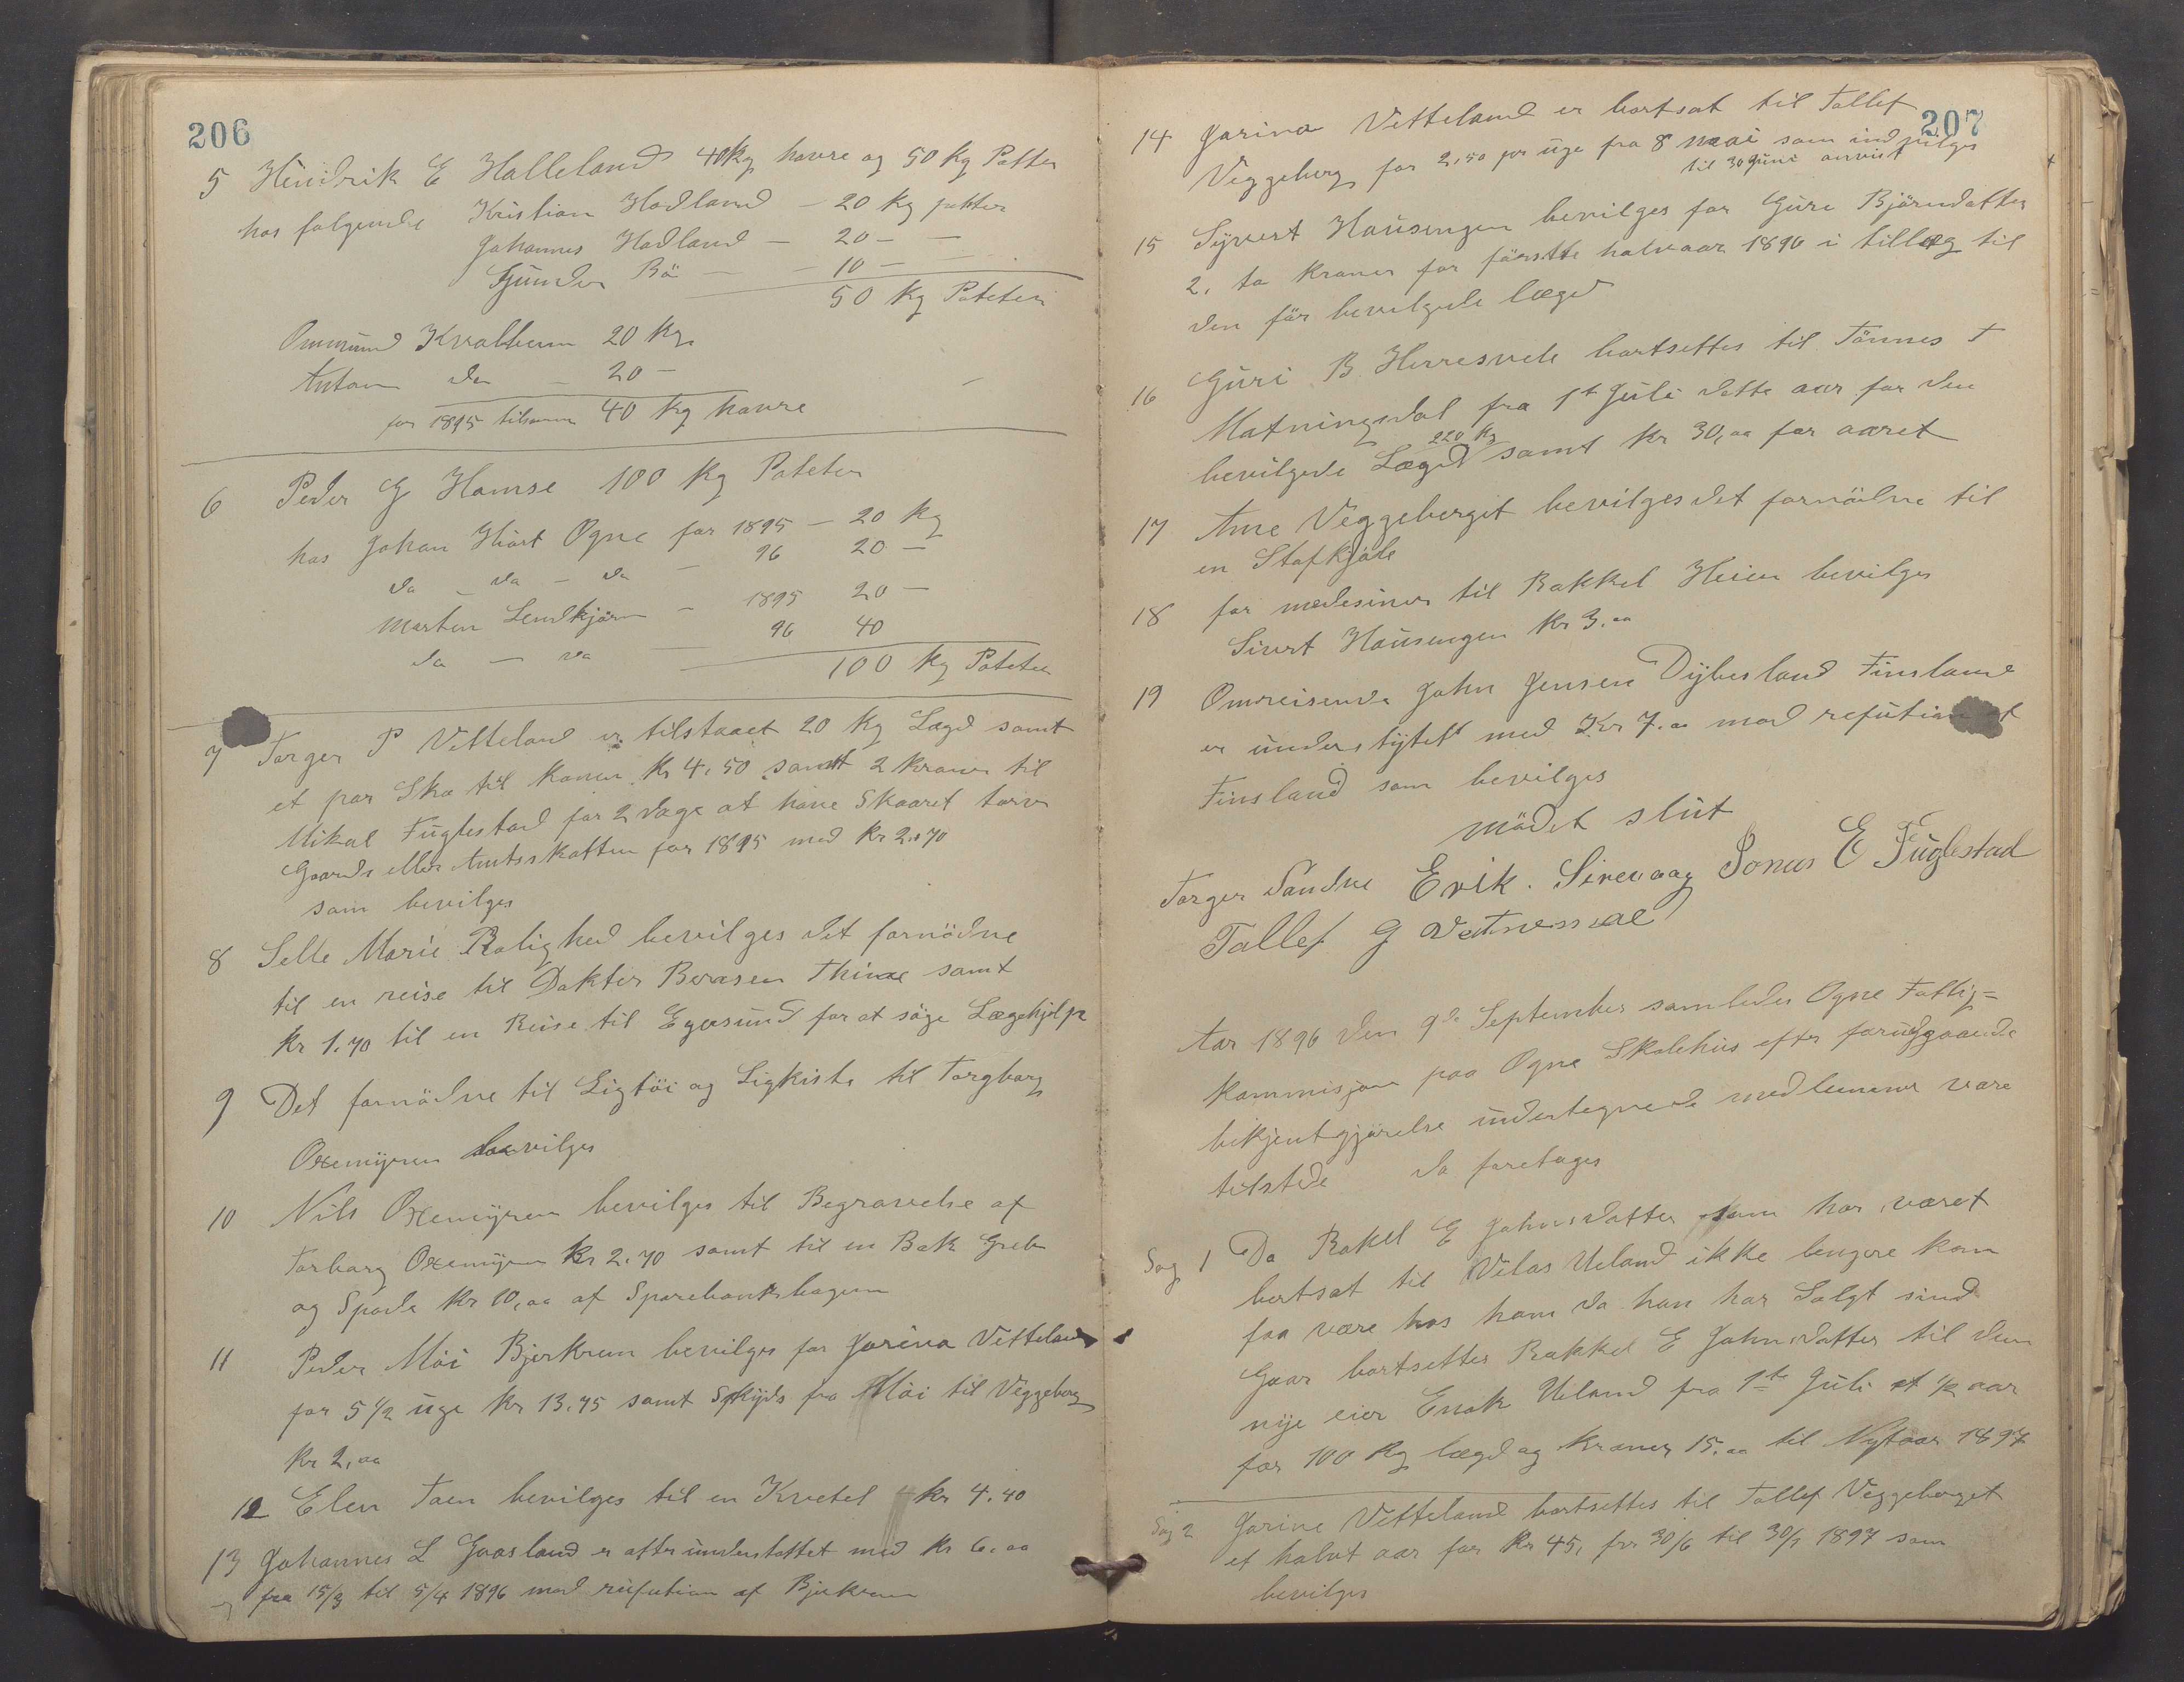 206
5 Hendrik E Halleland 40kg havre og 50 kg Potter
hos følgende Kristian Hadland - 20 kg potter
Johannes Hadland - 20 - -
Gunder Bö - - 10 - -
50 Kg Poteter
Ommund Kvalbein 20 Kg
Anton do - 20 -
for 1895 tilsamm 40 kg havre
6 Peder G Hamse 100 Kg Poteter
hos Johan Hiört Ogne for 1895 - 20 Kg
do - do - do - 96 20 -
Morten Lendkjörn - 1895 20 -
do - do 96 40
100 kg Poteter
7 Torger P Vetteland er tilstaaet 20 Kg Lægd samt
et par Sko til konen Kr 4,50 samt 2 kroner til
Mikal Fuglestad for 2 dage at have Skaaret torv
Gaards eller Amtsskatten for 1895 med Kr 2,70
som bevilges
8 Selle Marie Rolighed bevilges det fornödne
til en reise til Dokter Thime samt
Kr 1.70 til en Reise til Egersund for at söge Lægehjelp
9 Det fornödne til Ligtöi og Ligkiste til Torgborg
Oxemyren bevilges
10 Nils Oxemyren bevilges til Begravelse af
Torborg Oxemyren Kr 2.70 samt til en Bak Greb
og Spade Kr 10,00 af Sparebankbogen
11 Peder Möi Bjerkrem bevilges for Jorina Vetteland
for 5 1/2 uge Kr 13.75 samt Skyds fra Möi til Veggeberg
Kr 2,00
12 Elen Taen bevilges til en Kvetel kr 4.40
13 Johannes L Gaasland er atter understöttet med Kr 6.00
fra 15/3 til 5/4 1896 mod refution af Bjerkrem
207
14 Jorina Vetteland er bortsat til Tollef
Veggeberg for 2,50 pr uge fra 8 mai som indvilges
til 30 Juni anvist
15 Syvert Hausengen bevilges for Guri Björnsdatter
2. to kroner for förstte halvaar 1896 i tillæg til
den för bevilgede lægd
16 Guri B. Herresvele bortsettes til Tönnes T
Matningsdal fra 1t Juli dette aar for den
220 Kg
bevilgede Lægd samt Kr 30,00 for aaret
17 Ane Veggeberget bevilges det fornödne til
en Stofkjole
18 for medesiner til Rakkel Heien bevilges
Sivert Hausengen Kr 3.00
19 Omreisende John Jensen Dybesland Finsland
er understytett med Kr 7.00 mod refution af
Finsland som bevilges
mödet slut
Torger Sandve Erik. Sirevaag Jonas E Fuglestad
Tollef G Vatnemoe
Aar 1896 den 9de September samledes Ogne Fattig=
kommisjon paa Ogne Skolehus efter forudgaaende
bekjentgjörelse undertegnede medlemmer vare
tilstede da foretoges
Sag 1 Da Rakel E Johnsdatter som har været
bortsat til Vilas Ueland ikke lengere kan
faa være hos ham da han har Solgt sind
Gaar bortsettes Rakkel E Johnsdatter til den
nye eier Enok Ueland fra 1te Juli et 1/2 aar
for 100 Kg lægd og kroner 15.00 til Nytaar 1897
Sag 2 Jorine Vetteland bortsettes til Tollef Veggeberget
et halvt aar for Kr 45, fra 30/6 til 30/1 1897 som
bevilges